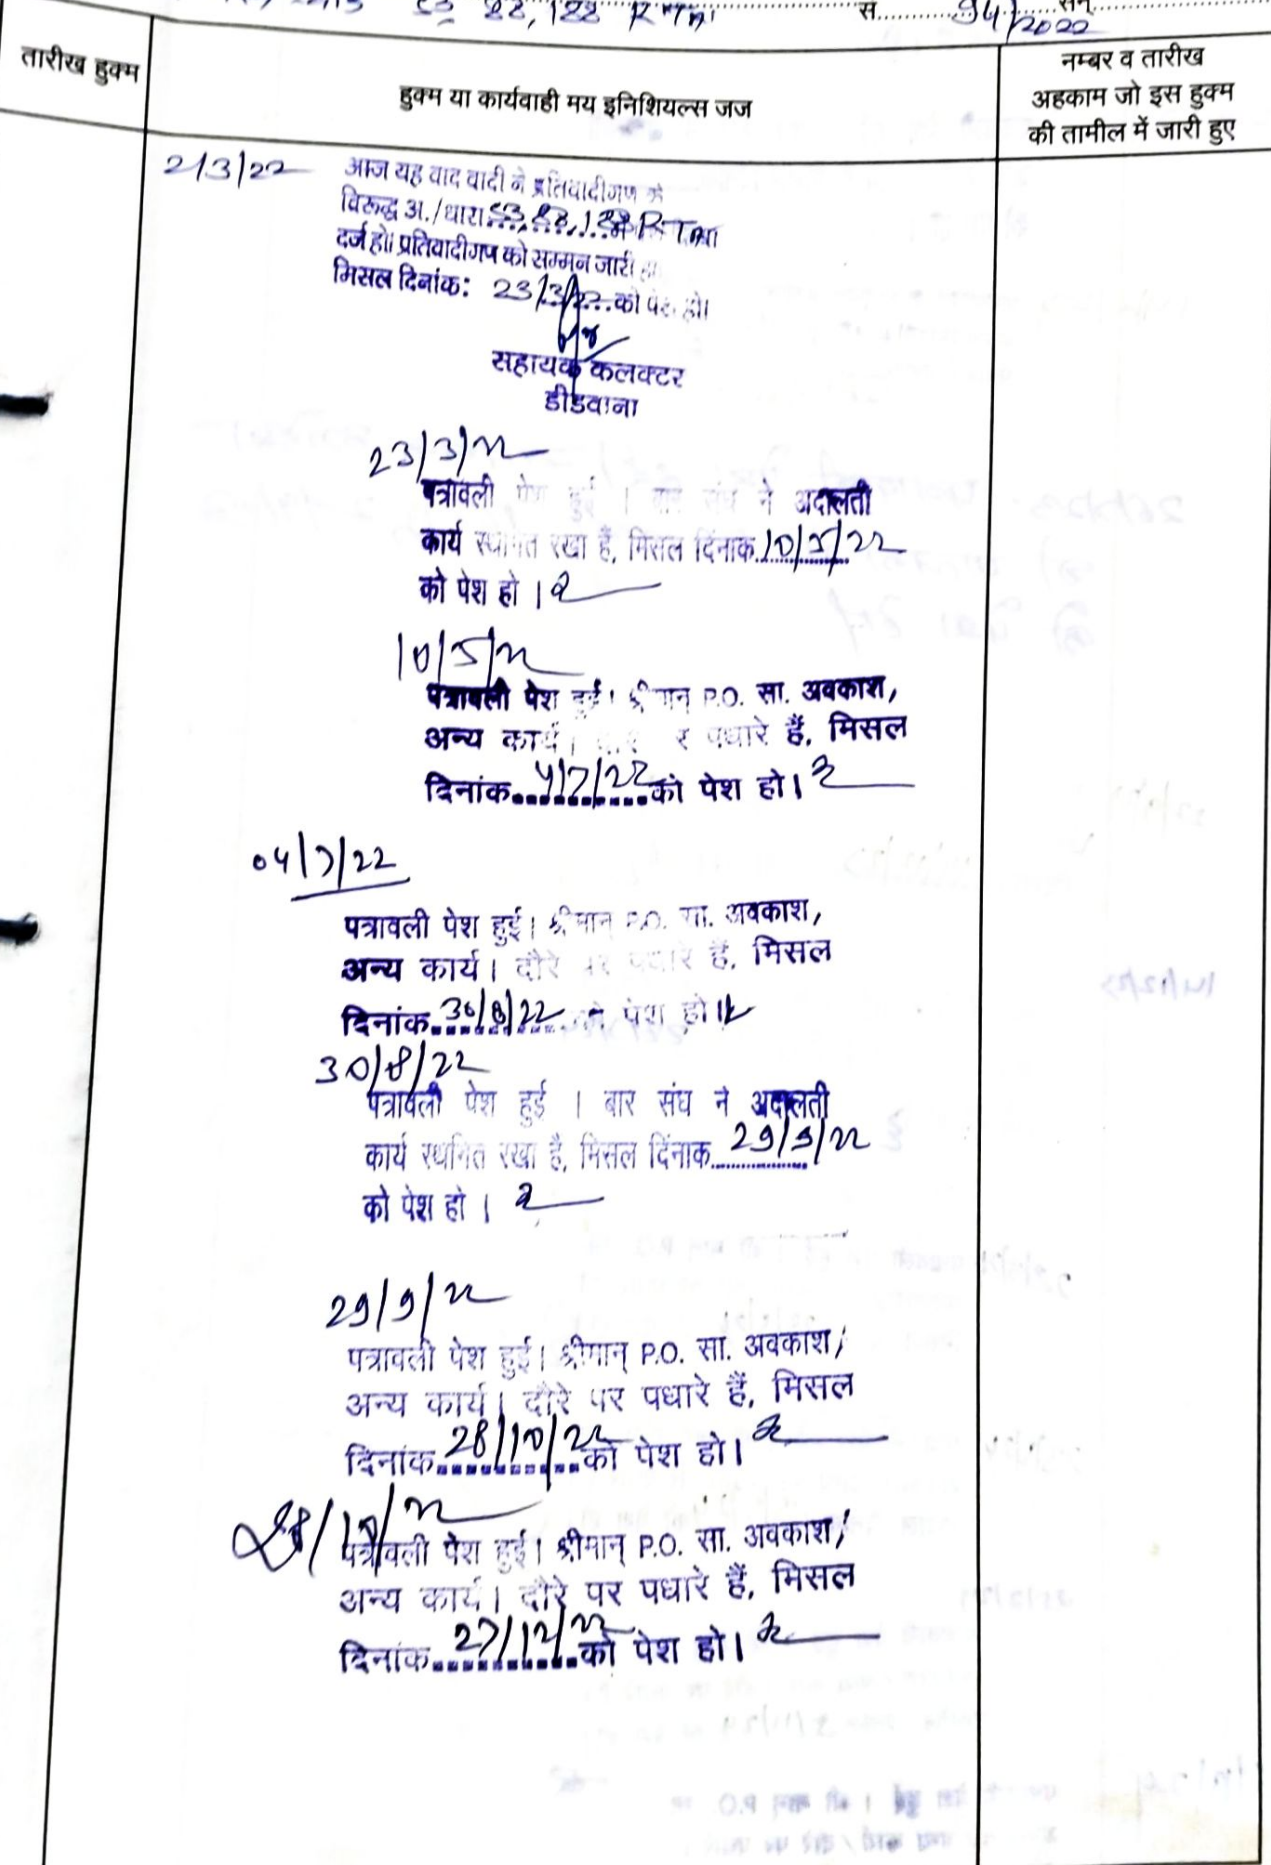 53, 88, 188 RTA स............94/2022 सन्
तारीख हुक्म
हुक्म या कार्यवाही मय इनिशियल्स जज
नम्बर व तारीख
अहकाम जो इस हुक्म
की तामील में जारी हुए
2/3/22
आज यह वाद वादी ने प्रतिवादीगण के
विरूद्ध अ./धारा 53, 88, 188 RTA
दर्ज हो। प्रतिवादीगण को सम्मन जारी हो
मिसल दिनांक: 23/3/22 को पेश हो।
सहायक कलक्टर
डीडवाना
23/3/22
पत्रावली पेश हुई । बार संघ ने अदालती
कार्य स्थगित रखा है, मिसल दिंनाक 10/5/22
को पेश हो ।
10/5/22
पत्रावली पेश हुई। श्रीमान् P.O. सा. अवकाश,
अन्य कार्य। पधारे हैं, मिसल
दिनांक 4/7/22 को पेश हो।
04/7/22
पत्रावली पेश हुई। श्रीमान् P.O. सा. अवकाश,
अन्य कार्य। दौरे पर पधारे हैं, मिसल
दिनांक 30/8/22 को पेश हो।
30/8/22
पत्रावली पेश हुई । बार संघ ने अदालती
कार्य स्थगित रखा है, मिसल दिंनाक 29/9/22
को पेश हो ।
29/9/22
पत्रावली पेश हुई। श्रीमान् P.O. सा. अवकाश,
अन्य कार्य। दौरे पर पधारे हैं, मिसल
दिनांक 28/10/22 को पेश हो।
28/10/22
पत्रावली पेश हुई। श्रीमान् P.O. सा. अवकाश,
अन्य कार्य। दौरे पर पधारे हैं, मिसल
दिनांक 27/12/22 को पेश हो।